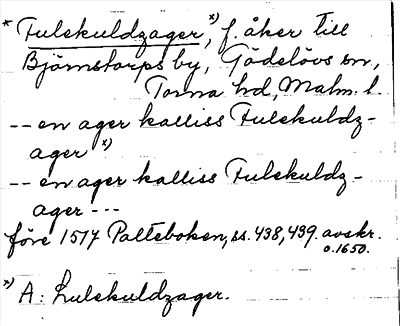 * Fulskuldzager,*) f. åker till
Björnstorps by, Gödelövs sn,
Torna hd, Malm. l.
-- en ager kalliss Fulskuldz-
ager *)
-- en ager kalliss Fulskuldz-
ager ---
före 1517 Palteboken, ss. 438, 439. avskr.
o. 1650.
*) A: Lulskuldzager.